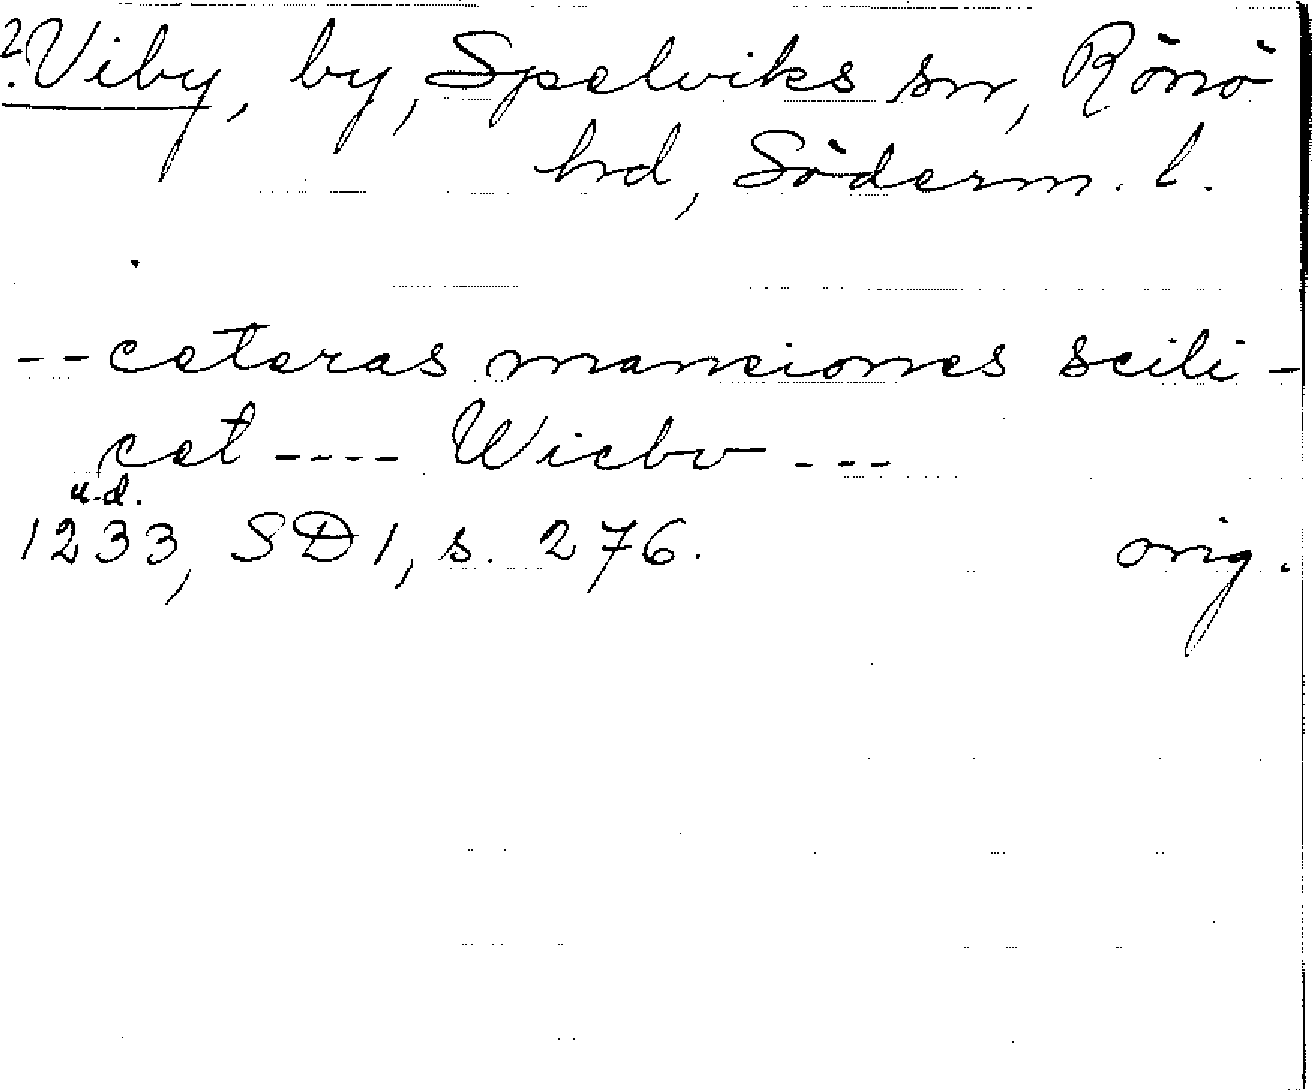 ?Viby, by, Spelviks sn, Rönö
hd, Söderm. l.
-- ceteras manciones scili-
cet ---- Wicbo ---
u.d.
1233, SD 1, s. 276. orig.